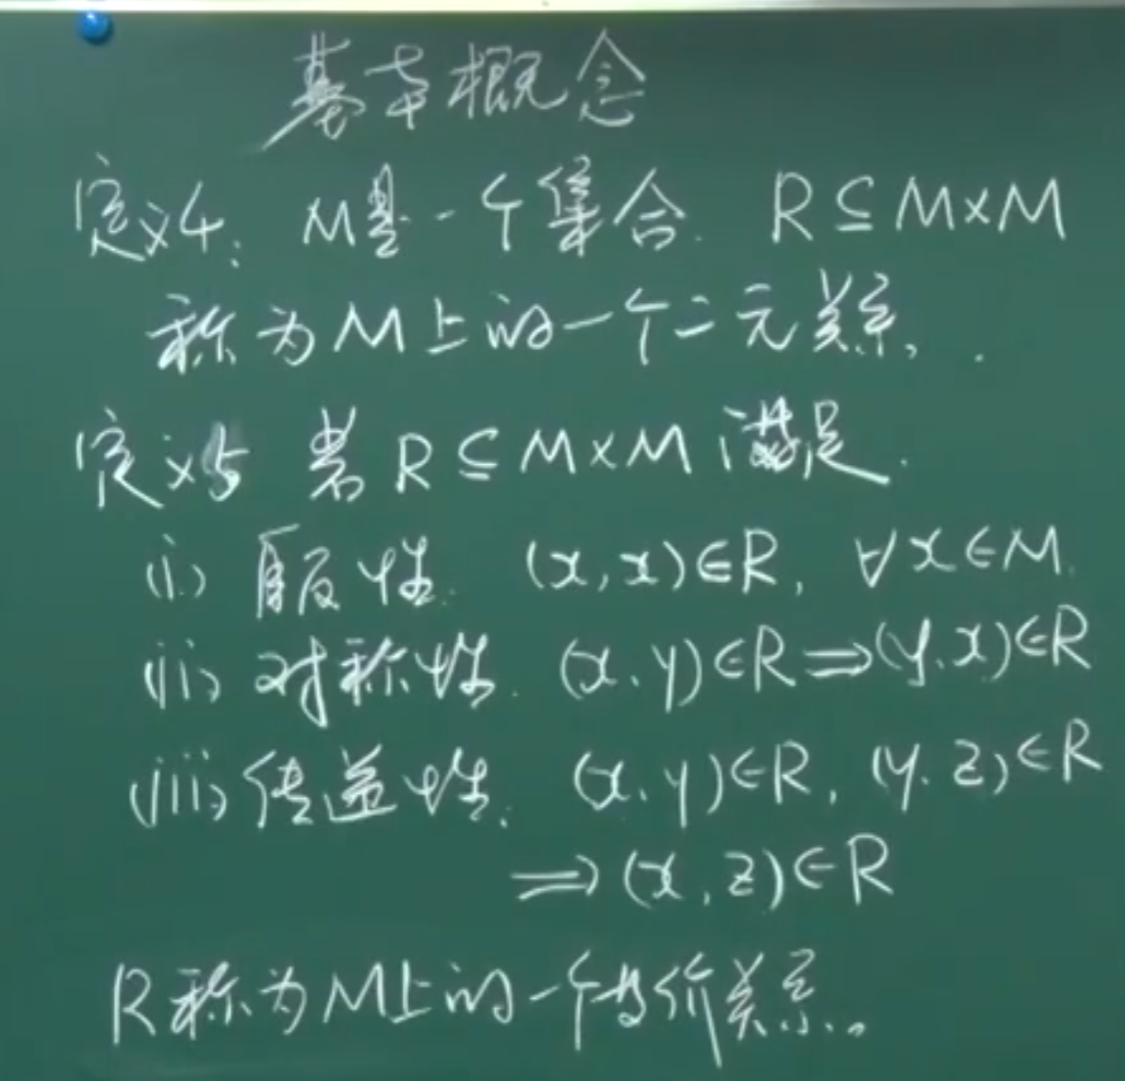 基本概念
定义4. M是一个集合. R⊆M×M
称为M上的一个二元关系.
定义5 若R⊆M×M满足.
(i) 自反性. (x,x)∈R, ∀x∈M.
(ii) 对称性. (x.y)∈R⇒(y.x)∈R
(iii) 传递性. (x.y)∈R, (y.z)∈R
⇒(x,z)∈R
R称为M上的一个等价关系.